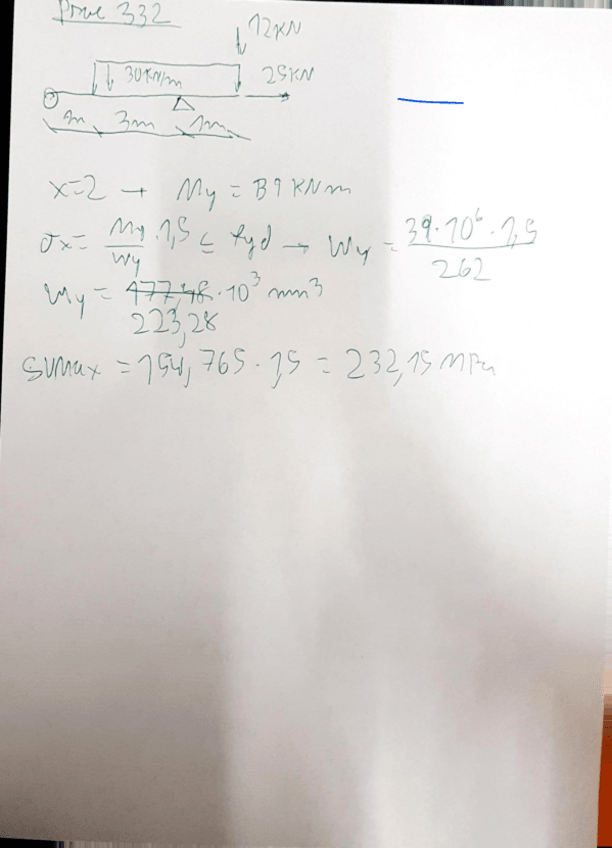 Prove 332
12KN
30KN/m
25KN
2m 3m 1m
x=2 → My = 39 KNm
σx = My/Wy · 1,5 ≤ fyd → Wy = 39·10⁶·1,5/262
Wy = 477,48·10³ mm³
223,28
SVMax = 154,765·1,5 = 232,15 MPa